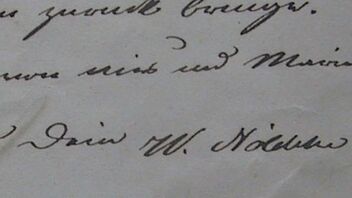 zurück bringe.
von uns und Marie
Dein W. Nöldeke